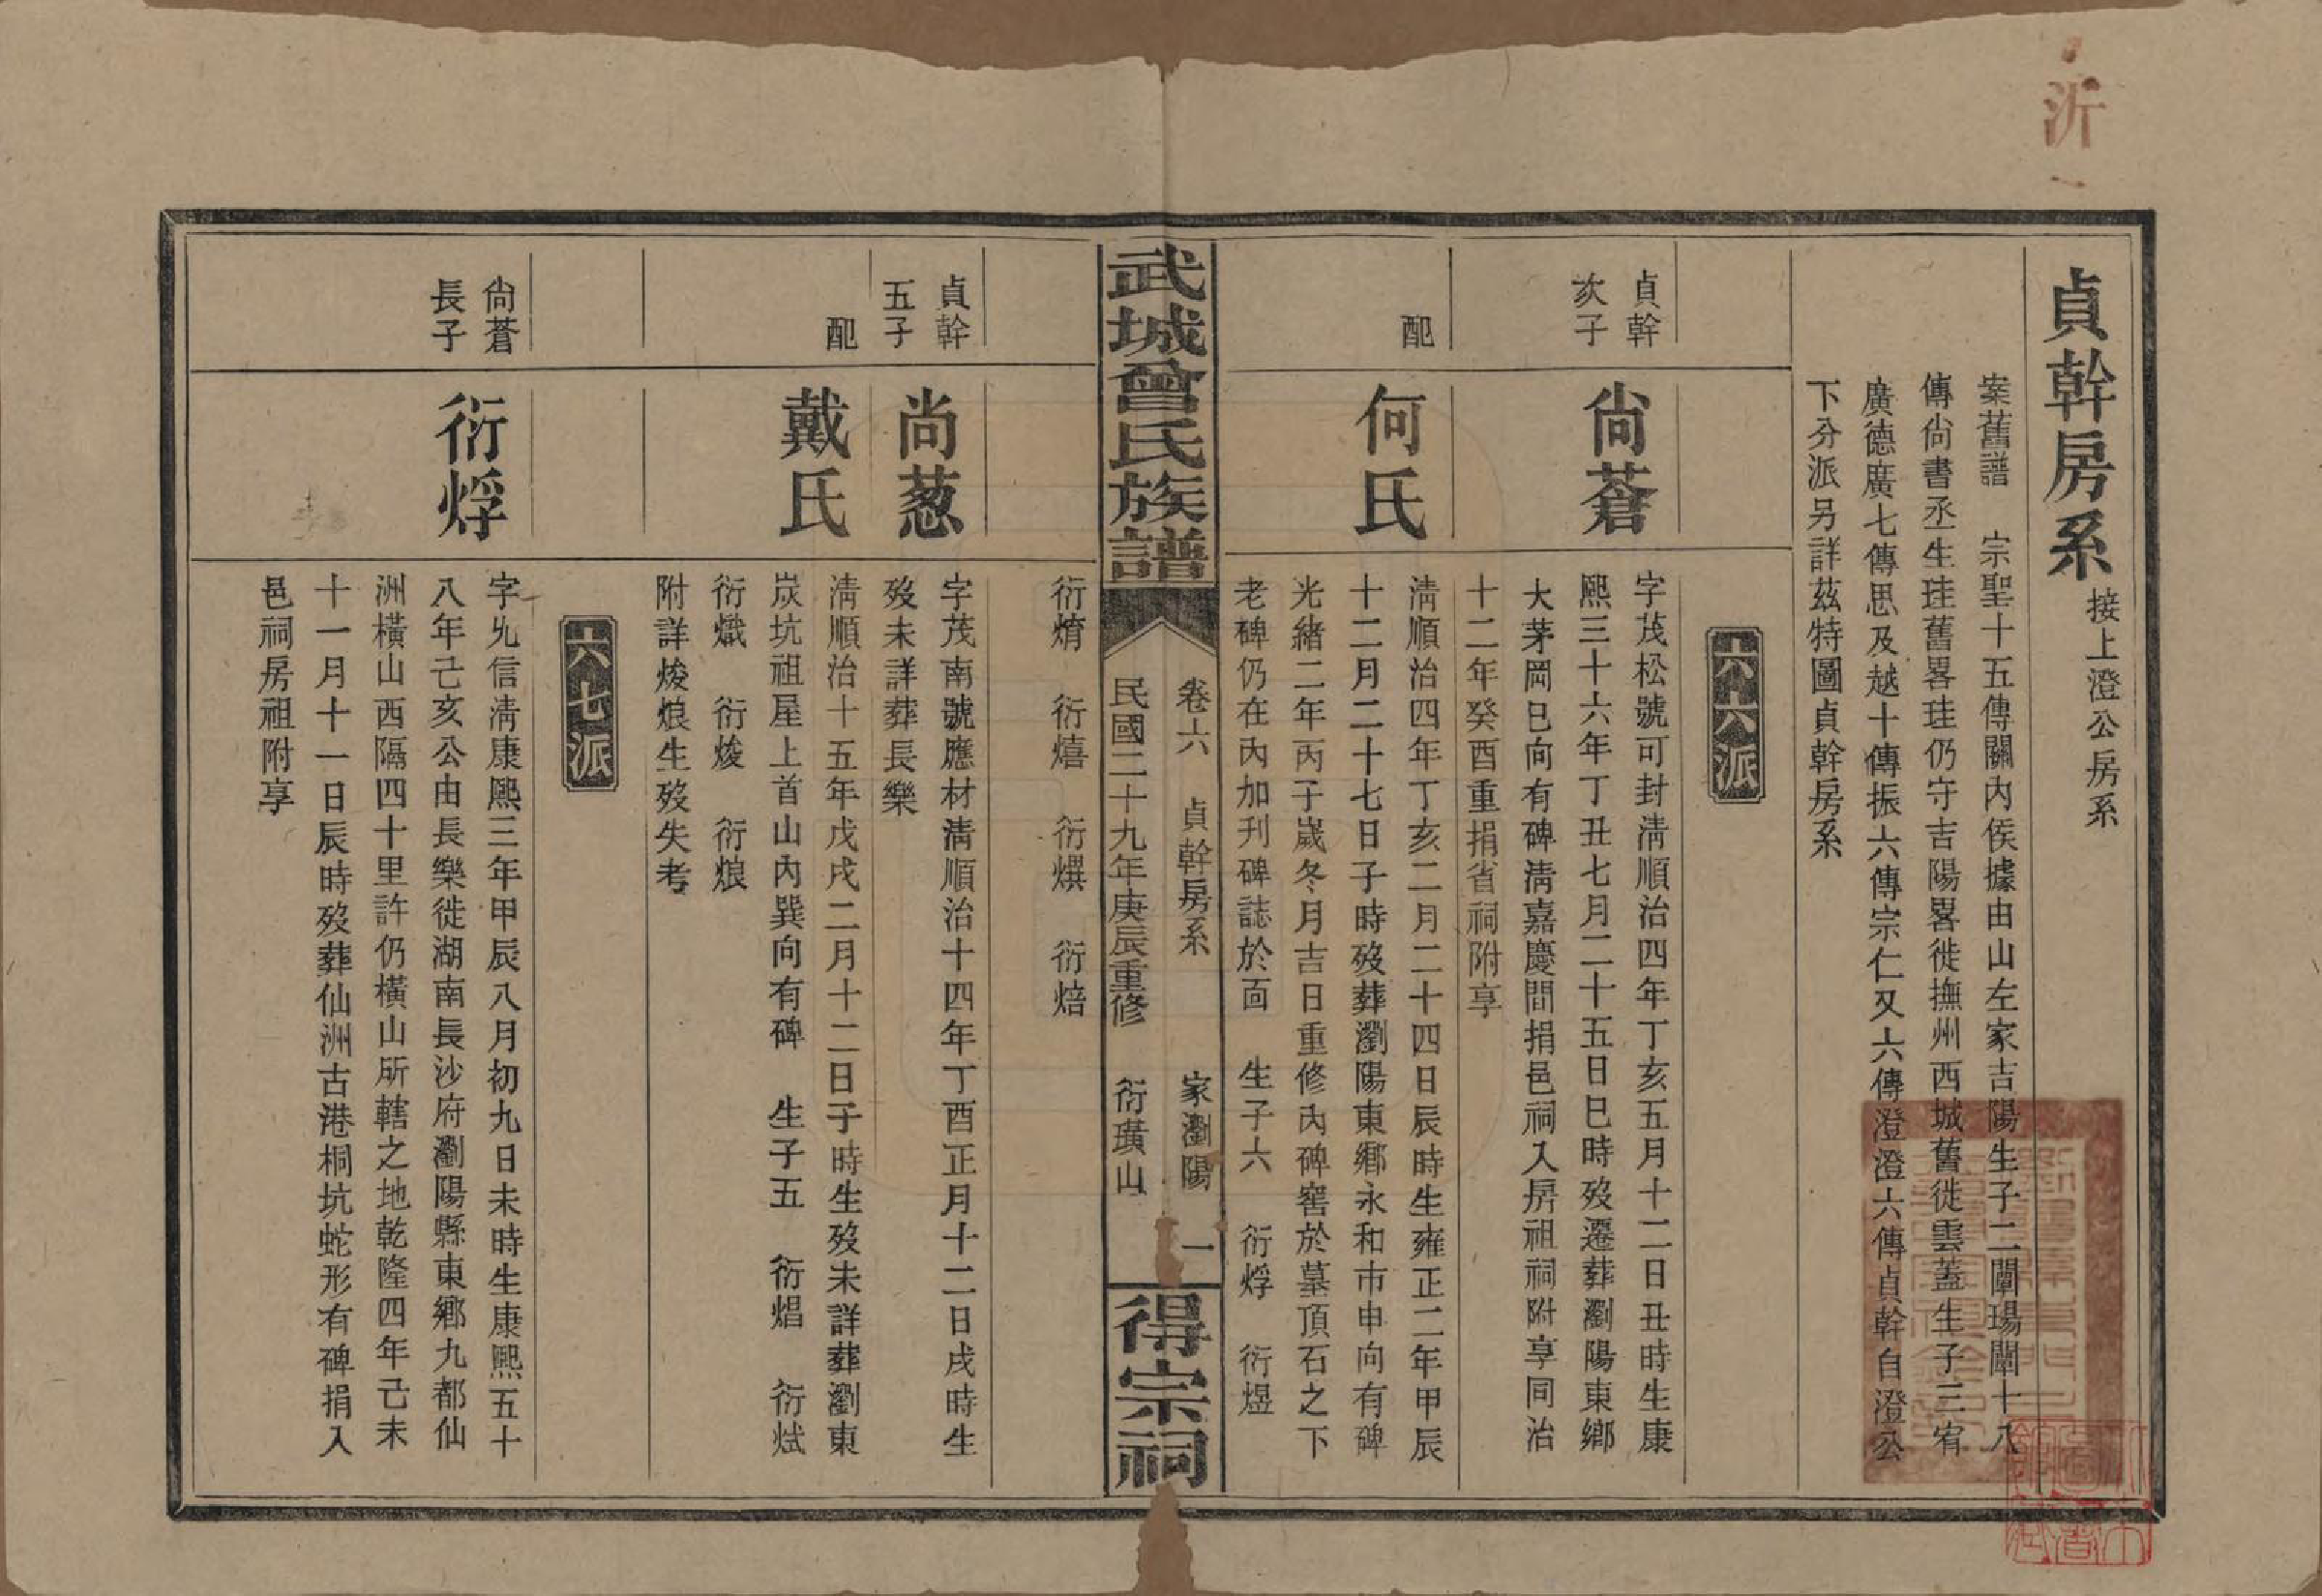 沂一
貞幹房系 接上澄公房系
案舊譜 宗聖十五傳關內侯據由山左家吉陽生子二闡瑒闡十八
傳尙書丞生珪舊畧珪仍守吉陽畧徙撫州西城舊徙雲蓋生子三宥
廣德廣七傳思及越十傳振六傳宗仁又六傳澄澄六傳貞幹自澄公
下分派另詳茲特圖貞幹房系
六六派
貞幹次子
尙蒼
字茂松號可封淸順治四年丁亥五月十二日丑時生康
熙三十六年丁丑七月二十五日巳時歿遷葬瀏陽東鄉
大茅岡巳向有碑淸嘉慶間捐邑祠入房祖祠附享同治
十二年癸酉重捐省祠附享
配
何氏
淸順治四年丁亥二月二十四日辰時生雍正二年甲辰
十二月二十七日子時歿葬瀏陽東鄉永和市申向有碑
光緒二年丙子歲冬月吉日重修內碑窖於墓頂石之下
老碑仍在內加刋碑誌於面 生子六 衍烰 衍煜
武城曾氏族譜
卷六 貞幹房系 家瀏陽 一
民國二十九年庚辰重修 衍璜山
得宗祠
衍焴 衍熺 衍熼 衍焙
貞幹五子
尚葱
字茂南號應材淸順治十四年丁酉正月十二日戌時生
歿未詳葬長樂
配
戴氏
淸順治十五年戊戌二月十二日子時生歿未詳葬瀏東
炭坑祖屋上首山內巽向有碑 生子五 衍焻 衍烒
衍熾 衍焌 衍烺
附詳焌烺生歿失考
六七派
尙蒼長子
衍烰
字允信淸康熙三年甲辰八月初九日未時生康熙五十
八年己亥公由長樂徙湖南長沙府瀏陽縣東鄉九都仙
洲橫山西隔四十里許仍橫山所轄之地乾隆四年己未
十一月十一日辰時歿葬仙洲古港桐坑蛇形有碑捐入
邑祠房祖附享